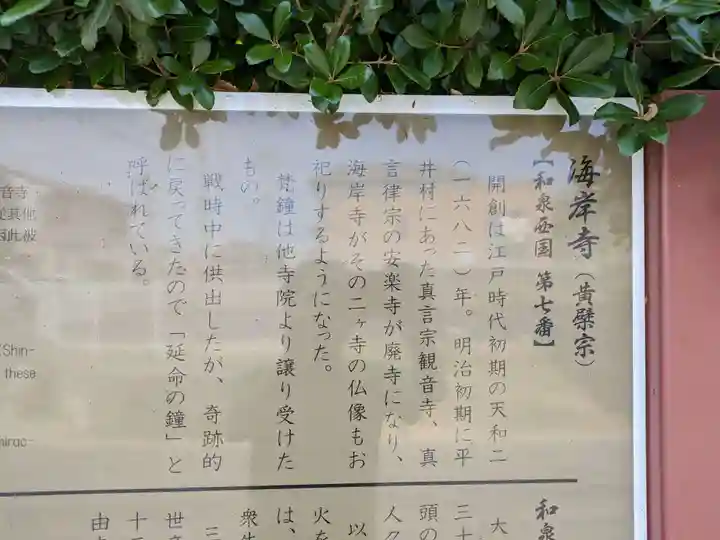 海岸寺（黄檗宗）
【和泉西国 第七番】
開創は江戸時代初期の天和二
（一六八二）年。明治初期に平
井村にあった真言宗観音寺、真
言律宗の安楽寺が廃寺になり、
海岸寺がその二ヶ寺の仏像もお
祀りするようになった。
梵鐘は他寺院より譲り受けた
もの。
戦時中に供出したが、奇跡的
に戻ってきたので「延命の鐘」と
呼ばれている。
音寺
these
和泉
大
三十
頭の
人々
以
火を
は、
衆生
三
世音
十三
由